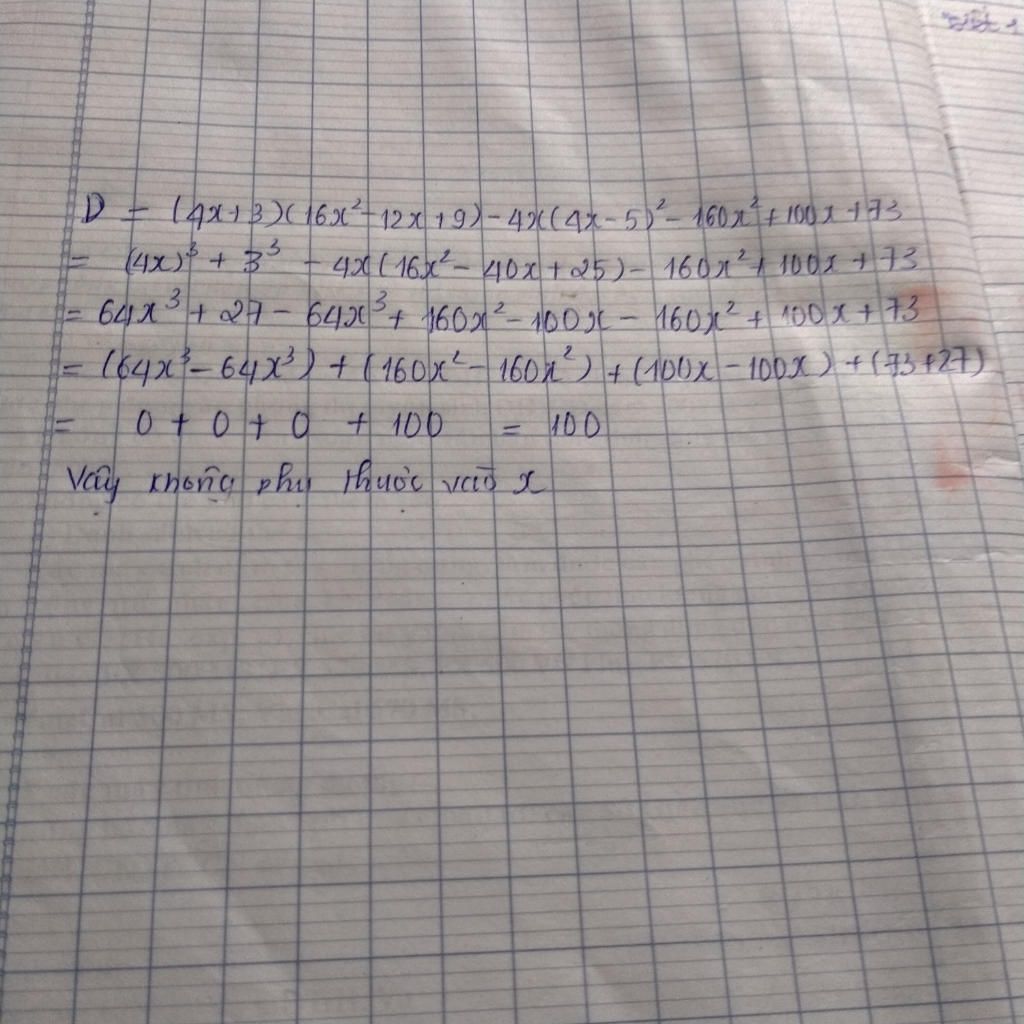 D = (4x+3)(16x²-12x+9)-4x(4x-5)²-160x²+100x+73
= (4x)³ + 3³ - 4x(16x²-40x+25)-160x²+100x+73
= 64x³ + 27 - 64x³ + 160x² - 100x - 160x² + 100x + 73
= (64x³-64x³) + (160x²-160x²) + (100x-100x) + (73+27)
= 0 + 0 + 0 + 100 = 100
Vậy không phụ thuộc vào x